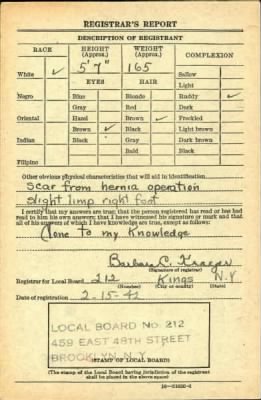 REGISTRAR'S REPORT
DESCRIPTION OF REGISTRANT
RACE HEIGHT (Approx.) WEIGHT (Approx.) COMPLEXION
5'7" 165
White ✓ Sallow
EYES HAIR Light
Negro Blue Blonde Ruddy ✓
Gray Red Dark
Oriental Hazel Brown ✓ Freckled
Brown ✓ Black Light brown
Indian Black Gray Dark brown
Bald Black
Filipino
Other obvious physical characteristics that will aid in identification
Scar from hernia operation
slight limp right foot
I certify that my answers are true; that the person registered has read or has had
read to him his own answers; that I have witnessed his signature or mark and that
all of his answers of which I have knowledge are true, except as follows:
(None to my Knowledge
Barbara C.
(Signature of registrar)
Registrar for Local Board 212 Kings N.Y
(Number) (City or county) (State)
Date of registration 2-15-42
LOCAL BOARD No. 212
459 EAST 48TH STREET
BROOKLYN, N.Y.
(STAMP OF LOCAL BOARD)
(The stamp of the Local Board having jurisdiction of the registrant
shall be placed in the above space)